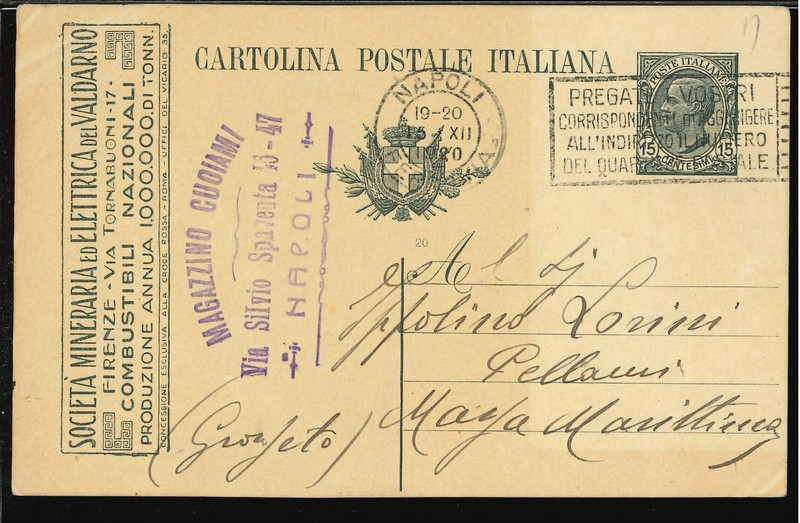 CARTOLINA POSTALE ITALIANA
POSTE ITALIANE
15 15
CENTESIMI
NAPOLI
19-20
XII
PREGATE VOSTRI
CORRISPONDENTI DI AGGIUNGERE
ALL'INDIRIZZO IL NUMERO
DEL QUARTIERE POSTALE
SOCIETÀ MINERARIA ED ELETTRICA DEL VALDARNO
FIRENZE - VIA TORNABUONI - 17 -
COMBUSTIBILI NAZIONALI
PRODUZIONE ANNUA 1.000.000. DI TONN.
CONCESSIONE ESCLUSIVA ALLA CROCE ROSSA - ROMA - UFFICI DEL VICARIO 35.
MAGAZZINO CUOIAMI
Via Silvio Spaventa 13-47
NAPOLI
20
Al Sj
Ippolino Lorini
Pellami
Massa Marittima
(Grosseto)